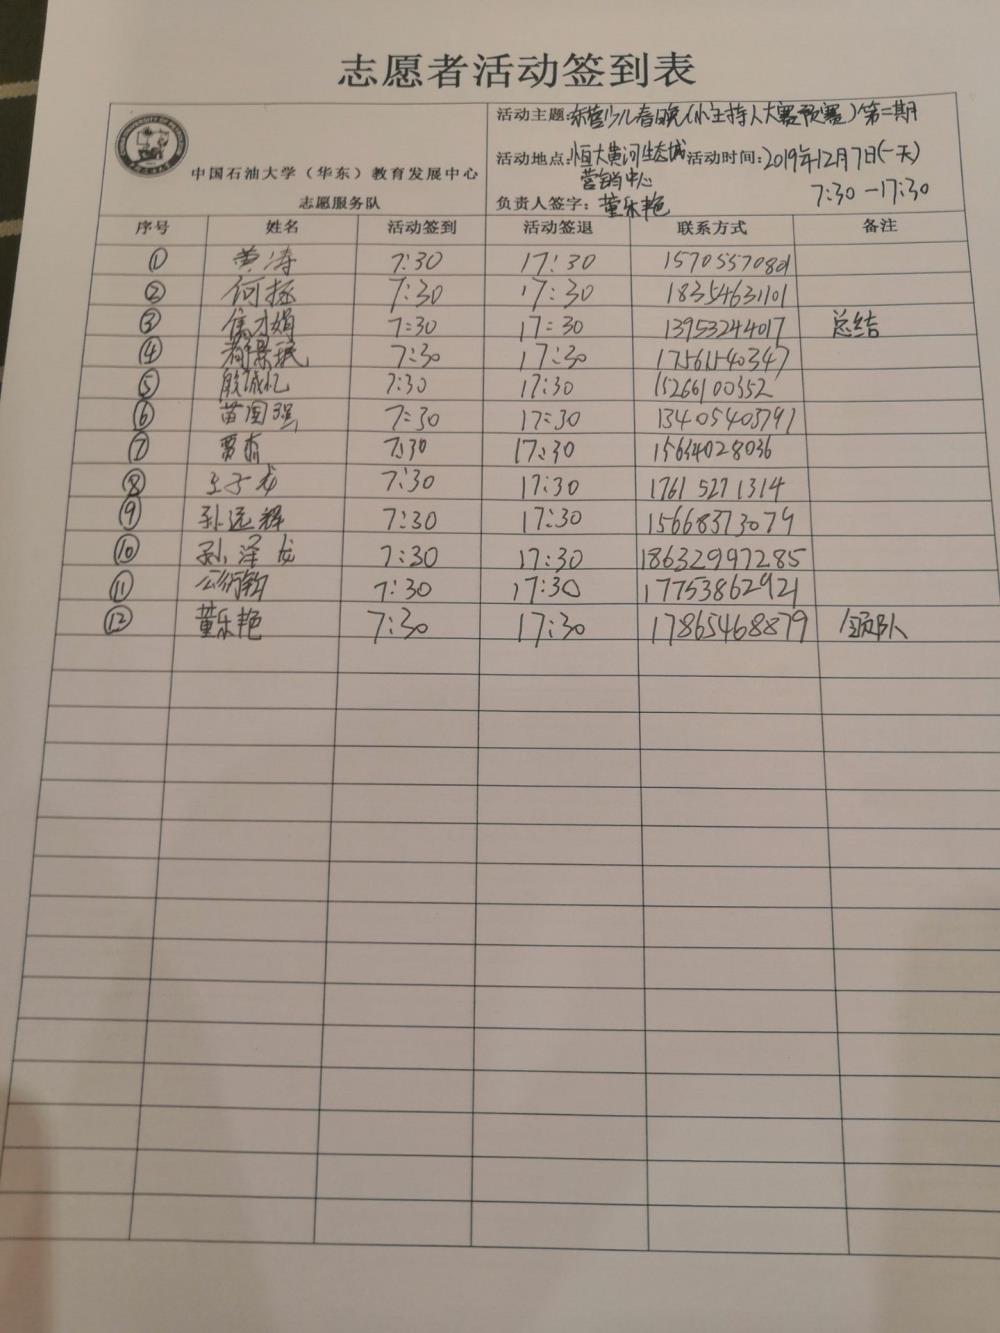 志愿者活动签到表
中国石油大学（华东）教育发展中心
志愿服务队
活动主题:东营少儿春晚(小主持人大赛预赛)第二期
活动地点:恒大黄河生态城 活动时间:2019年12月7日(一天)
营销中心 7:30-17:30
负责人签字: 董乐艳
序号 姓名 活动签到 活动签退 联系方式 备注
① 黄涛 7:30 17:30 15705570801
② 何拯 7:30 17:30 18354631101
③ 7:30 17:30 13953244017 总结
④ 7:30 17:30 17561540347
⑤ 殷诚忆 7:30 17:30 15266100352
⑥ 苗国强 7:30 17:30 13405403791
⑦ 7:30 17:30 15634028036
⑧ 王子龙 7:30 17:30 1761 527 1314
⑨ 孙远辉 7:30 17:30 15668373079
⑩ 孙泽龙 7:30 17:30 18632997285
⑪ 7:30 17:30 17753862921
⑫ 董乐艳 7:30 17:30 17865468879 领队